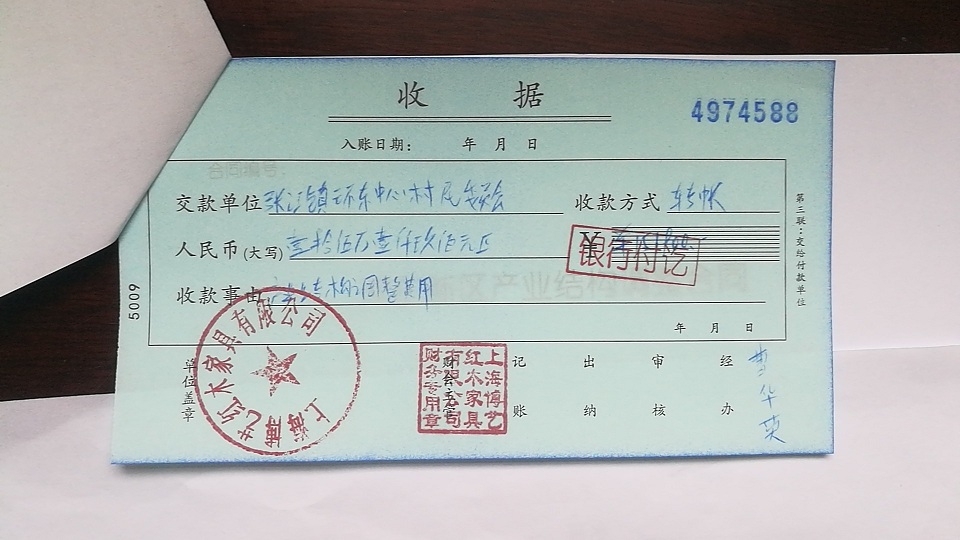 收据
4974588
入账日期： 年 月 日
合同编号：
交款单位 张江镇环东中心村民委会 收款方式 转帐
人民币(大写) 壹拾伍万壹仟玖佰元正 ¥
银行付讫
收款事由 结构调整费用
年 月 日
第三联：交给付款单位
5009
单位盖章 财会主管 记账 出纳 审核 经办 曹华荣
上海博艺红木家具有限公司
上海博艺红木家具有限公司财务专用章